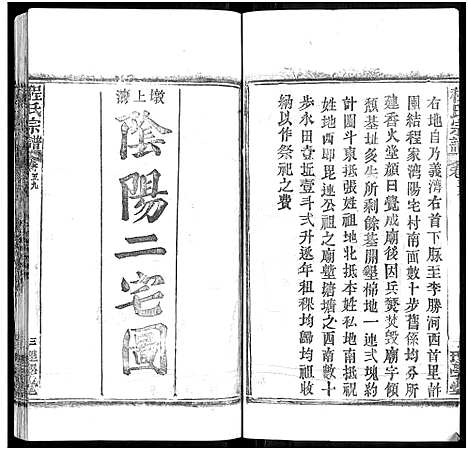 程氏宗譜
右地自乃義濟右首下脉王李勝河西首里許
團結程家灣陽宅村南面數十步舊係均分所
建香火堂顏曰覺成廟後因兵燹焚毀廟字傾
頹基址多年所剩餘基開墾棉地一連弍塊約
計圓斗東抵張姓祖地北抵本姓私地南抵祝
姓地西即毘連公祖之廟塹塘塘之西南數十
步永田壹坵壹斗弍升逐年租稞均歸均祖收
納以作祭祀之費
墩上灣
陰陽二宅圖
程氏宗譜
卷五九
三